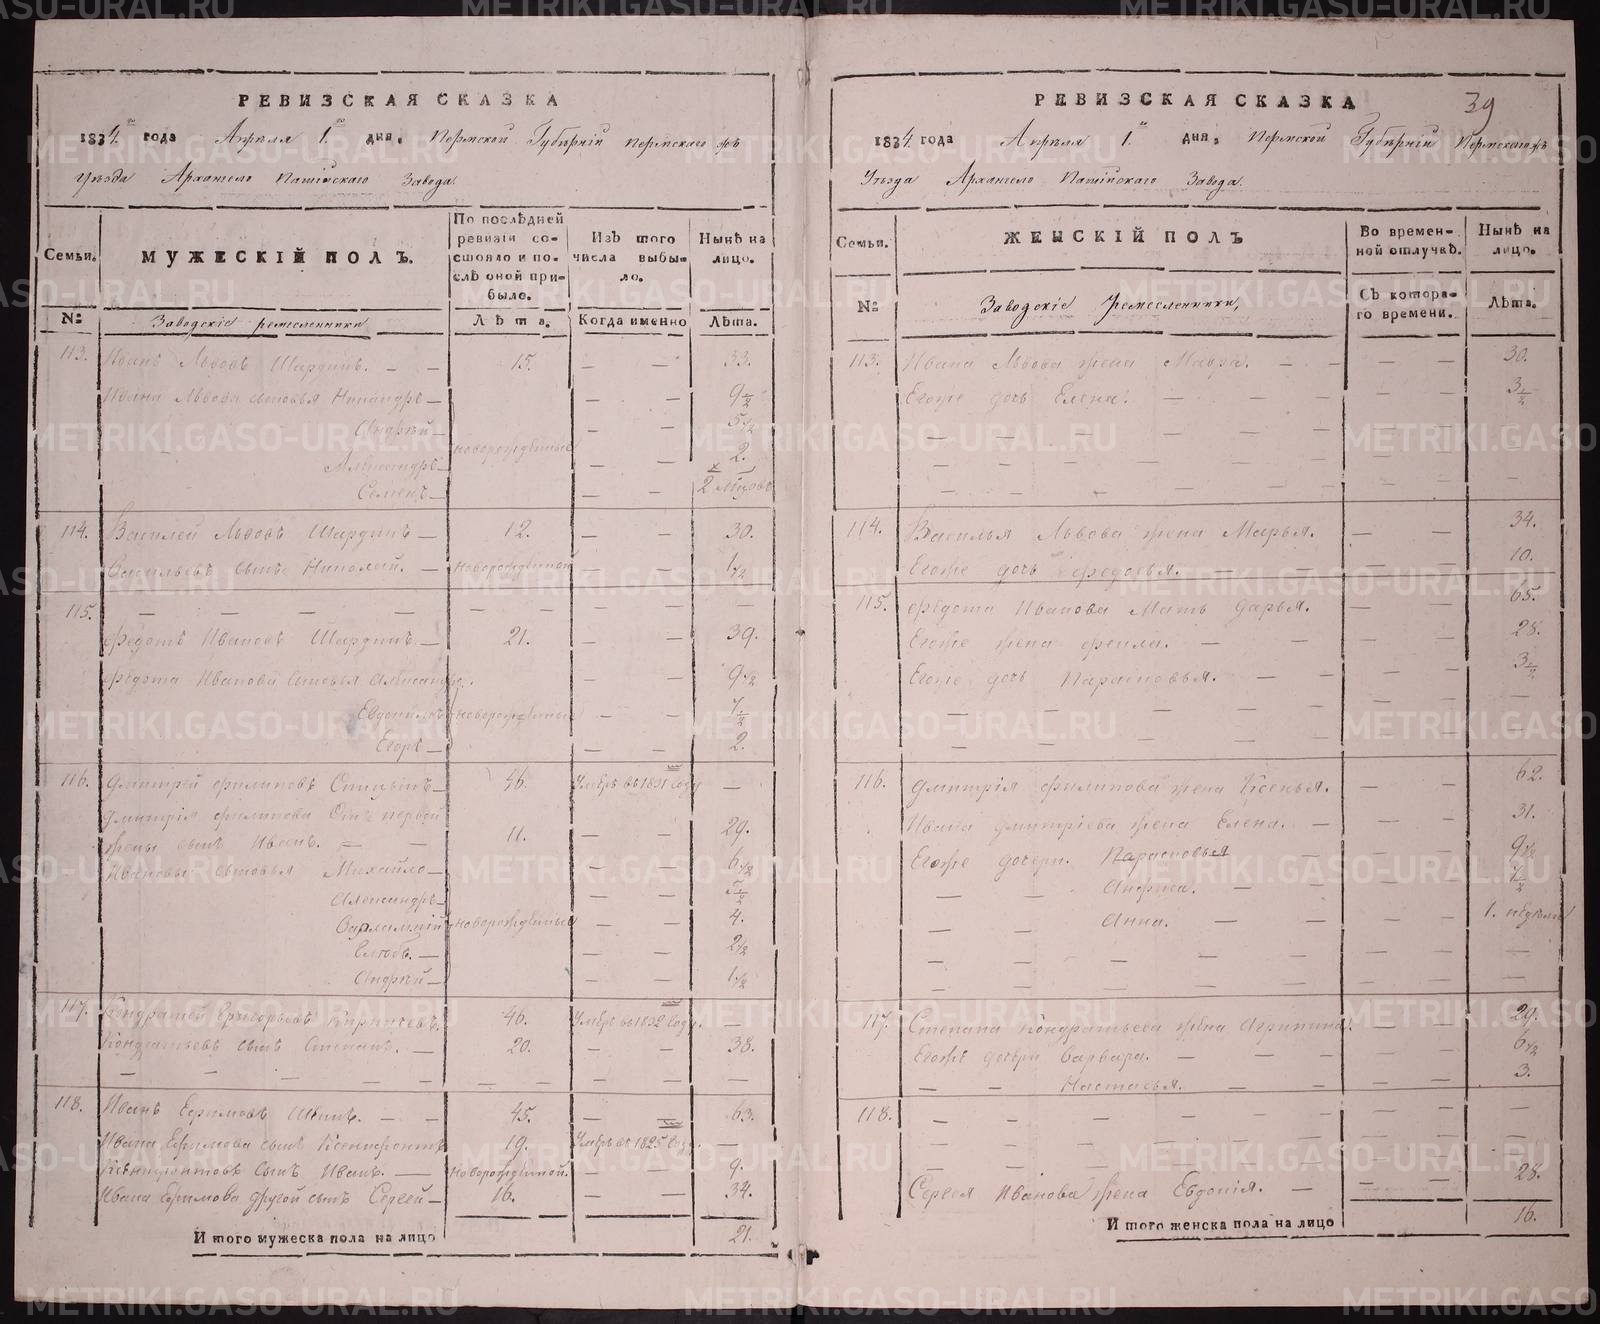 РЕВИЗСКАЯ СКАЗКА
1834 года Апреля 1 дня, Пермской Губерніи Пермскаго жъ
Уѣзда Архангело Пашійскаго Завода.
Семьи.
МУЖЕСКІЙ ПОЛЪ.
По послѣдней ревизіи состояло и послѣ оной прибыло.
Изъ того числа выбыло.
Нынѣ на лицо.
№
Заводскіе ремесленники
Лѣта.
Когда именно
Лѣта.
113. Иванъ Львовъ Шардинъ. — — 15. — — 33.
Ивана Львова сыновья Никандръ — — — 9 1/2
Андрей — — — 5 1/2
новорожденные
Александръ — — — 2.
Семенъ — — — 2 мѣсяцовъ
114. Василей Львовъ Шардинъ — 12. — — 30.
Васильевъ сынъ Николай. — новорожденной — — 1 1/2
115. — — — — — — — — —
Федотъ Ивановъ Шардинъ — 21. — — 39.
Федота Иванова сыновья Александръ. — — 9 1/2
Евдокимъ новорожденные — — 7 1/2
Егоръ — — — 2.
116. Дмитрей Филиповъ 46. Умеръ въ 1831 году —
Дмитрія Филипова отъ первой
жены сынъ Иванъ. — — 11. — — 29.
Ивановы сыновья Михайло — — — 6 1/2
Александръ — — — 5 1/2
Варламлій новорожденные — — 4.
Глѣбъ. — — — 2 1/2
Андрей — — — 1 1/2
117. Кондратей Григорьевъ Кирпичевъ. 46. Умеръ въ 1832 году. —
Кондратьевъ сынъ Степанъ. — 20. — — 38.
— — — — — — — — —
118. Иванъ Ефимовъ — — 45. — — 63.
Ивана Ефимова сынъ Ксенофонтъ 19. Умеръ въ 1825 году. —
Ксенофонтовъ сынъ Иванъ. — новорожденной. — — 9.
Ивана Ефимова другой сынъ Сергей — 16. — — 34.
Итого мужеска пола на лицо 21.
39
РЕВИЗСКАЯ СКАЗКА
1834 года Апреля 1 дня, Пермской Губерніи Пермскаго жъ
Уѣзда Архангело Пашійскаго Завода.
Семьи.
ЖЕНСКІЙ ПОЛЪ
Во временной отлучкѣ.
Нынѣ на лицо.
№
Заводскіе Ремесленники,
Съ котораго времени.
Лѣта.
113. Ивана Львова жена Мавра. — — — — 30.
Егоже дочь Елена. — — — — 3 1/2
— — — — — — — —
— — — — — — — —
— — — — — — — —
114. Василья Львова жена Марья. — — 34.
Егоже дочь Федосья. — — — 10.
115. Федота Иванова Мать Дарья. — — 65.
Егоже жена Фекла. — — — — 28.
Егоже дочь Парасковья. — — — — 3 1/2
— — — — — — — —
— — — — — — — —
116. Дмитрія Филипова жена Ксенья. — — 62.
Ивана Дмитріева жена Елена. — — — 31.
Егоже дочери. Парасковья — — 9 1/2
Анфиса. — — — — 7 1/2
Анна. — — — — 1. недѣли
— — — — — — — —
— — — — — — — —
117. Степана Кондратьева жена Агрипина. — — 29.
Егоже дочери Варвара. — — — — 6 1/2
Настасья. — — — — 3.
118. — — — — — — —
— — — — — — — —
— — — — — — — —
Сергея Иванова жена Евдокія. — — — 28.
Итого женска пола на лицо 16.
METRIKI.GASO-URAL.RU